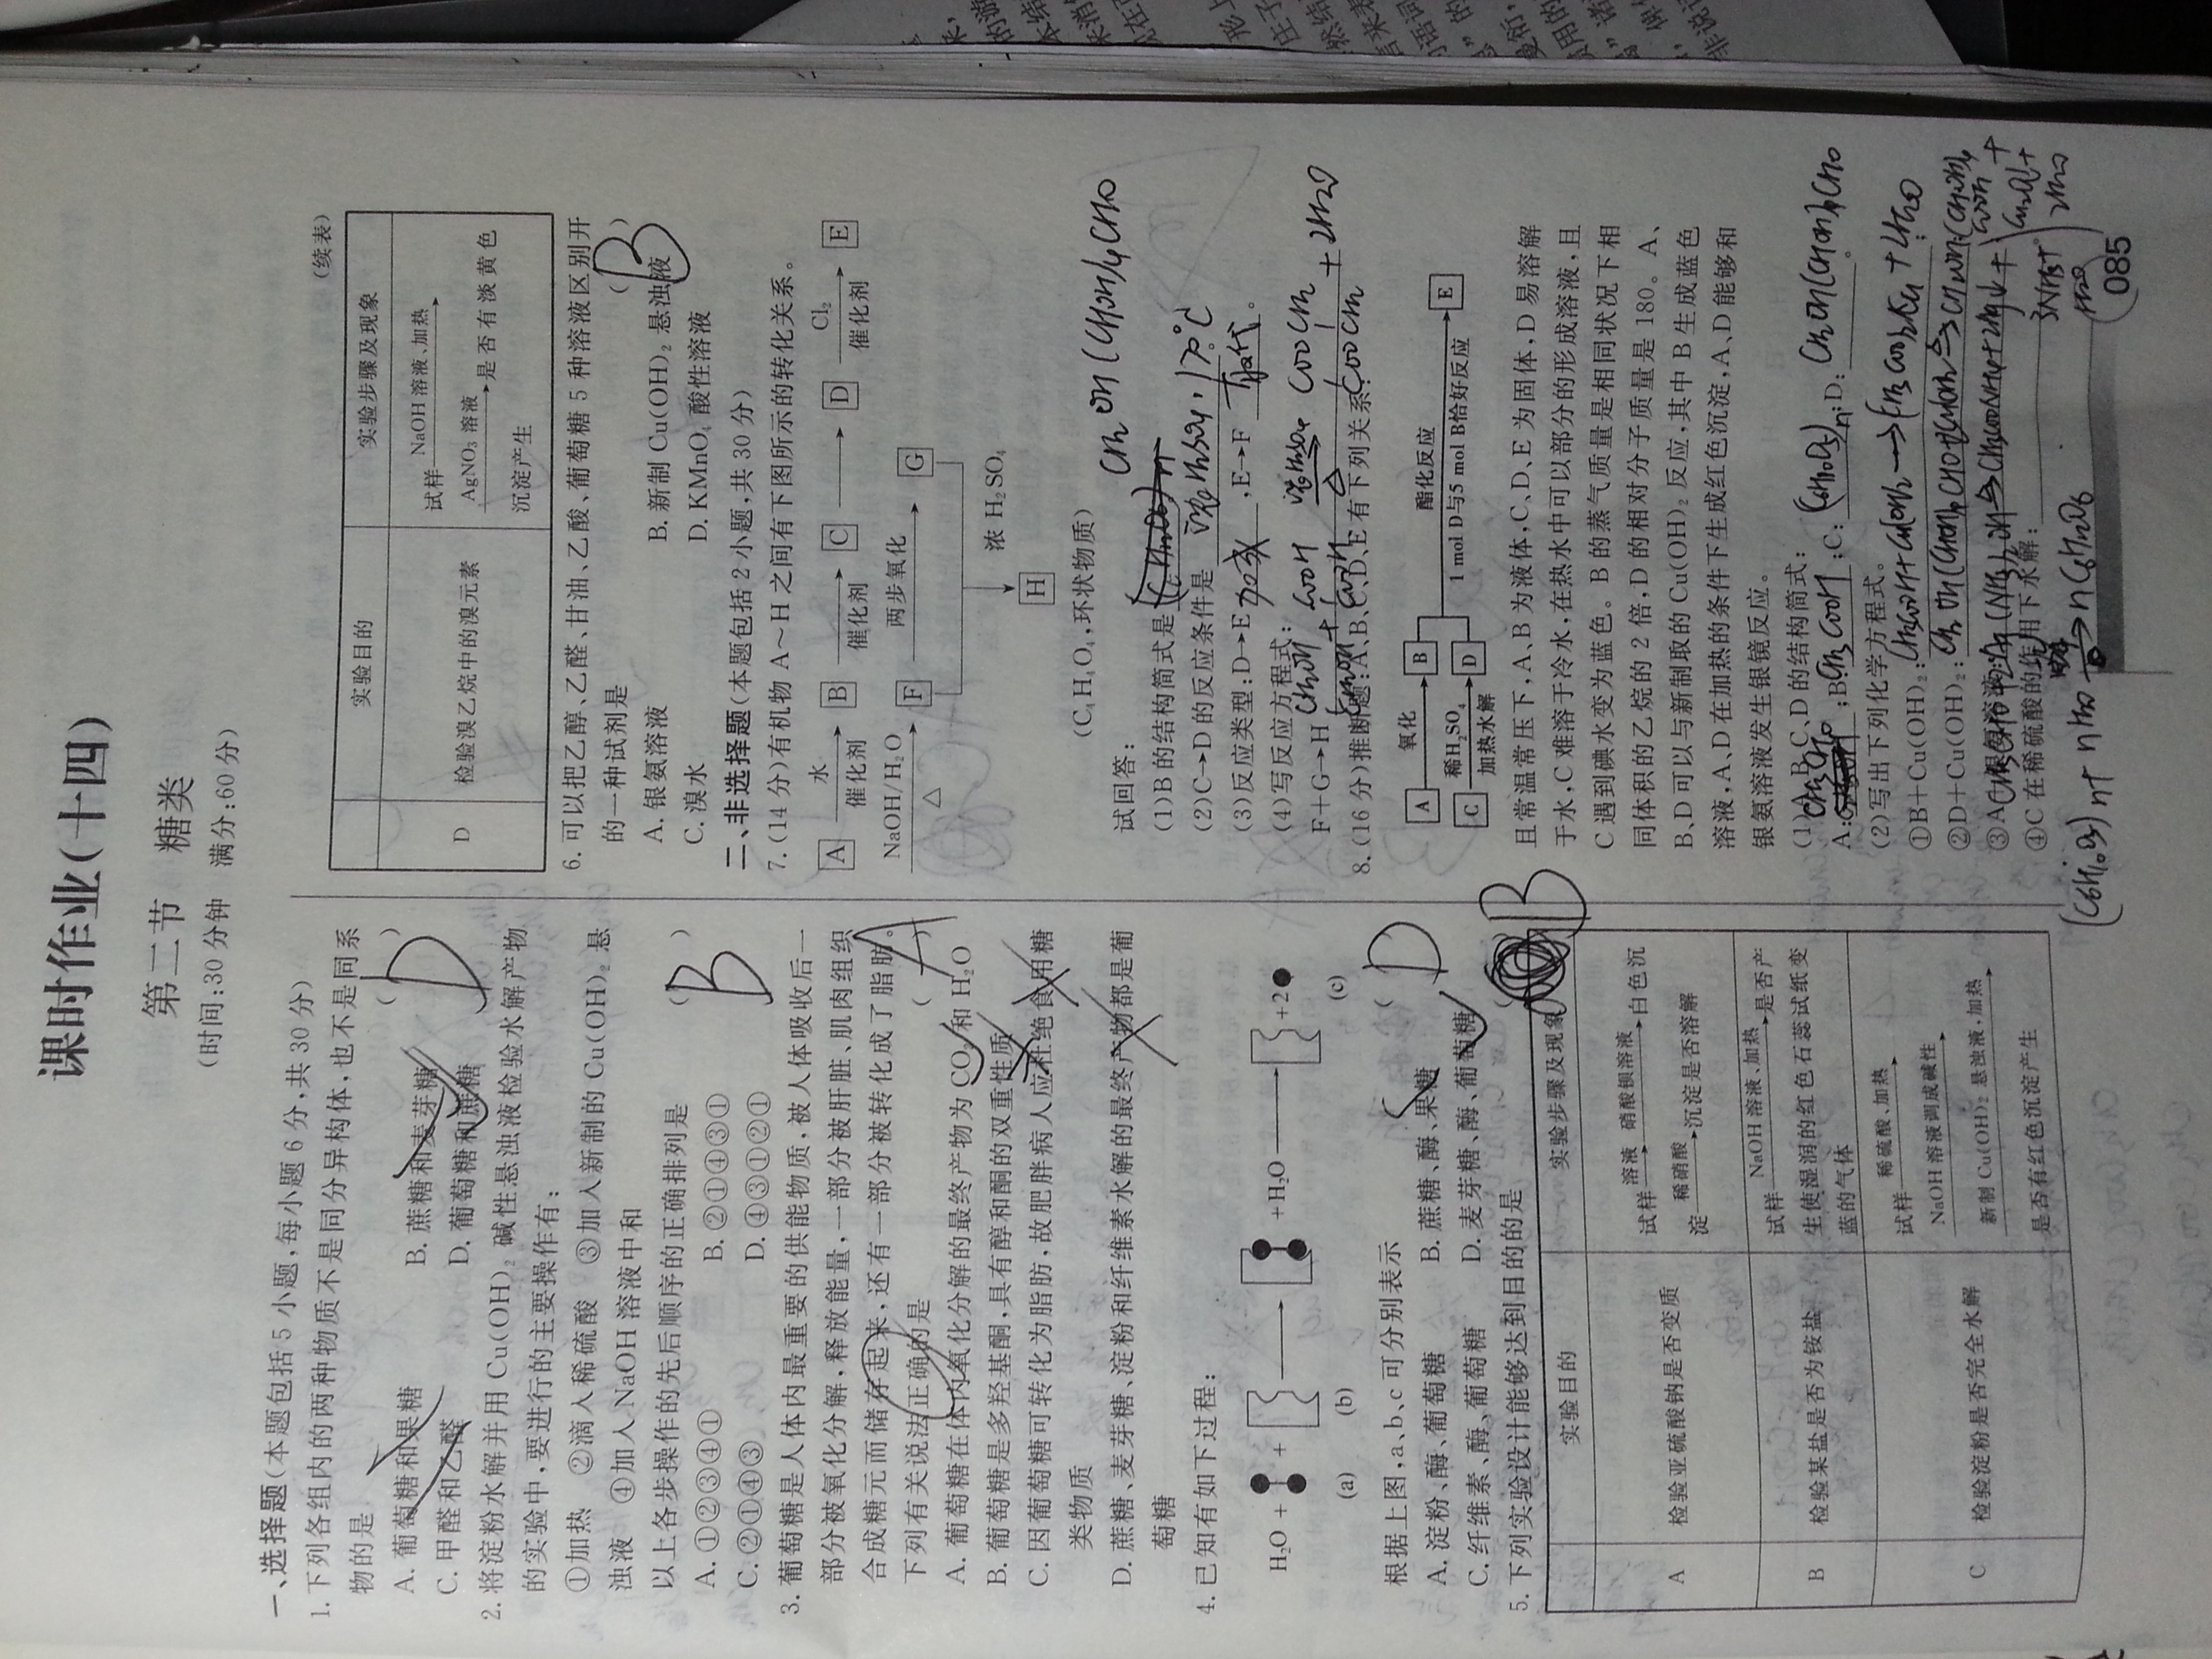 课时作业(十四)
第二节 糖类
(时间:30分钟 满分:60分)
一、选择题(本题包括5小题,每小题6分,共30分)
1.下列各组内的两种物质不是同分异构体,也不是同系
物的是 ( D )
A.葡萄糖和果糖 B.蔗糖和麦芽糖
C.甲醛和乙醛 D.葡萄糖和蔗糖
2.将淀粉水解并用Cu(OH)₂碱性悬浊液检验水解产物
的实验中,要进行的主要操作有:
①加热 ②滴入稀硫酸 ③加入新制的Cu(OH)₂悬
浊液 ④加入NaOH溶液中和
以上各步操作的先后顺序的正确排列是 ( B )
A.①②③④① B.②①④③①
C.②①④③ D.④③①②①
3.葡萄糖是人体内最重要的供能物质,被人体吸收后一
部分被氧化分解,释放能量,一部分被肝脏、肌肉组织
合成糖元而储存起来,还有一部分被转化成了脂肪。
下列有关说法正确的是 ( A )
A.葡萄糖在体内氧化分解的最终产物为CO₂和H₂O
B.葡萄糖是多羟基酮,具有醇和酮的双重性质
C.因葡萄糖可转化为脂肪,故肥胖病人应杜绝食用糖
类物质
D.蔗糖、麦芽糖、淀粉和纤维素水解的最终产物都是葡
萄糖
4.已知有如下过程:
H₂O + + +H₂O +2
(a) (b) (c)
根据上图,a、b、c可分别表示 ( D )
A.淀粉、酶、葡萄糖 B.蔗糖、酶、果糖
C.纤维素、酶、葡萄糖 D.麦芽糖、酶、葡萄糖
5.下列实验设计能够达到目的的是 B
实验目的 实验步骤及现象
A 检验亚硫酸钠是否变质
试样 溶液 硝酸钡溶液 白色沉
淀 稀硝酸 沉淀是否溶解
B 检验某盐是否为铵盐
试样 NaOH溶液、加热 是否产
生使湿润的红色石蕊试纸变
蓝的气体
C 检验淀粉是否完全水解
试样 稀硫酸、加热
NaOH溶液调成碱性
新制Cu(OH)₂悬浊液,加热
是否有红色沉淀产生
(续表)
实验目的 实验步骤及现象
D 检验溴乙烷中的溴元素
试样 NaOH溶液、加热
AgNO₃溶液 是否有淡黄色
沉淀产生
6.可以把乙醇、乙醛、甘油、乙酸、葡萄糖5种溶液区别开
的一种试剂是 ( B )
A.银氨溶液 B.新制Cu(OH)₂悬浊液
C.溴水 D.KMnO₄酸性溶液
二、非选择题(本题包括2小题,共30分)
7.(14分)有机物A~H之间有下图所示的转化关系。
A 水 催化剂 B 催化剂 C D Cl₂ 催化剂 E
NaOH/H₂O △ F 两步氧化 G
浓H₂SO₄
H
(C₄H₄O₄,环状物质)
试回答:
CH₂OH(CHOH)₄CHO
(1)B的结构简式是
(2)C→D的反应条件是 浓H₂SO₄,170℃
(3)反应类型:D→E 加成 ,E→F 取代 。
(4)写反应方程式:
F+G→H CH₂OH COOH 浓H₂SO₄ COOCH₂
CH₂OH + COOH △ COOCH₂ + 2H₂O
8.(16分)推断题:A、B、C、D、E有下列关系:
A 氧化 B 酯化反应
C 稀H₂SO₄ 加热水解 D 1 mol D与5 mol B恰好反应 E
且常温常压下,A、B为液体,C、D、E为固体,D易溶解
于水,C难溶于冷水,在热水中可以部分的形成溶液,且
C遇到碘水变为蓝色。B的蒸气质量是相同状况下相
同体积的乙烷的2倍,D的相对分子质量是180。A、
B、D可以与新制取的Cu(OH)₂反应,其中B生成蓝色
溶液,A、D在加热的条件下生成红色沉淀,A、D能够和
银氨溶液发生银镜反应。
(1)A、B、C、D的结构简式:
A: CH₃CHO ;B: CH₃COOH ;C: (C₆H₁₀O₅)n ;D: CH₂OH(CHOH)₄CHO 。
(2)写出下列化学方程式。
①B+Cu(OH)₂: CH₃COOH+Cu(OH)₂→(CH₃COO)₂Cu+2H₂O ;
②D+Cu(OH)₂: CH₂OH(CHOH)₄CHO+2Cu(OH)₂ △→ CH₂OH(CHOH)₄
COOH +
Cu₂O↓+
2H₂O
③A+银氨溶液: CH₃CHO+2Ag(NH₃)₂OH △→ CH₃COONH₄+2Ag↓+
3NH₃+
H₂O
④C在稀硫酸的作用下水解:
(C₆H₁₀O₅)n + nH₂O → nC₆H₁₂O₆
085